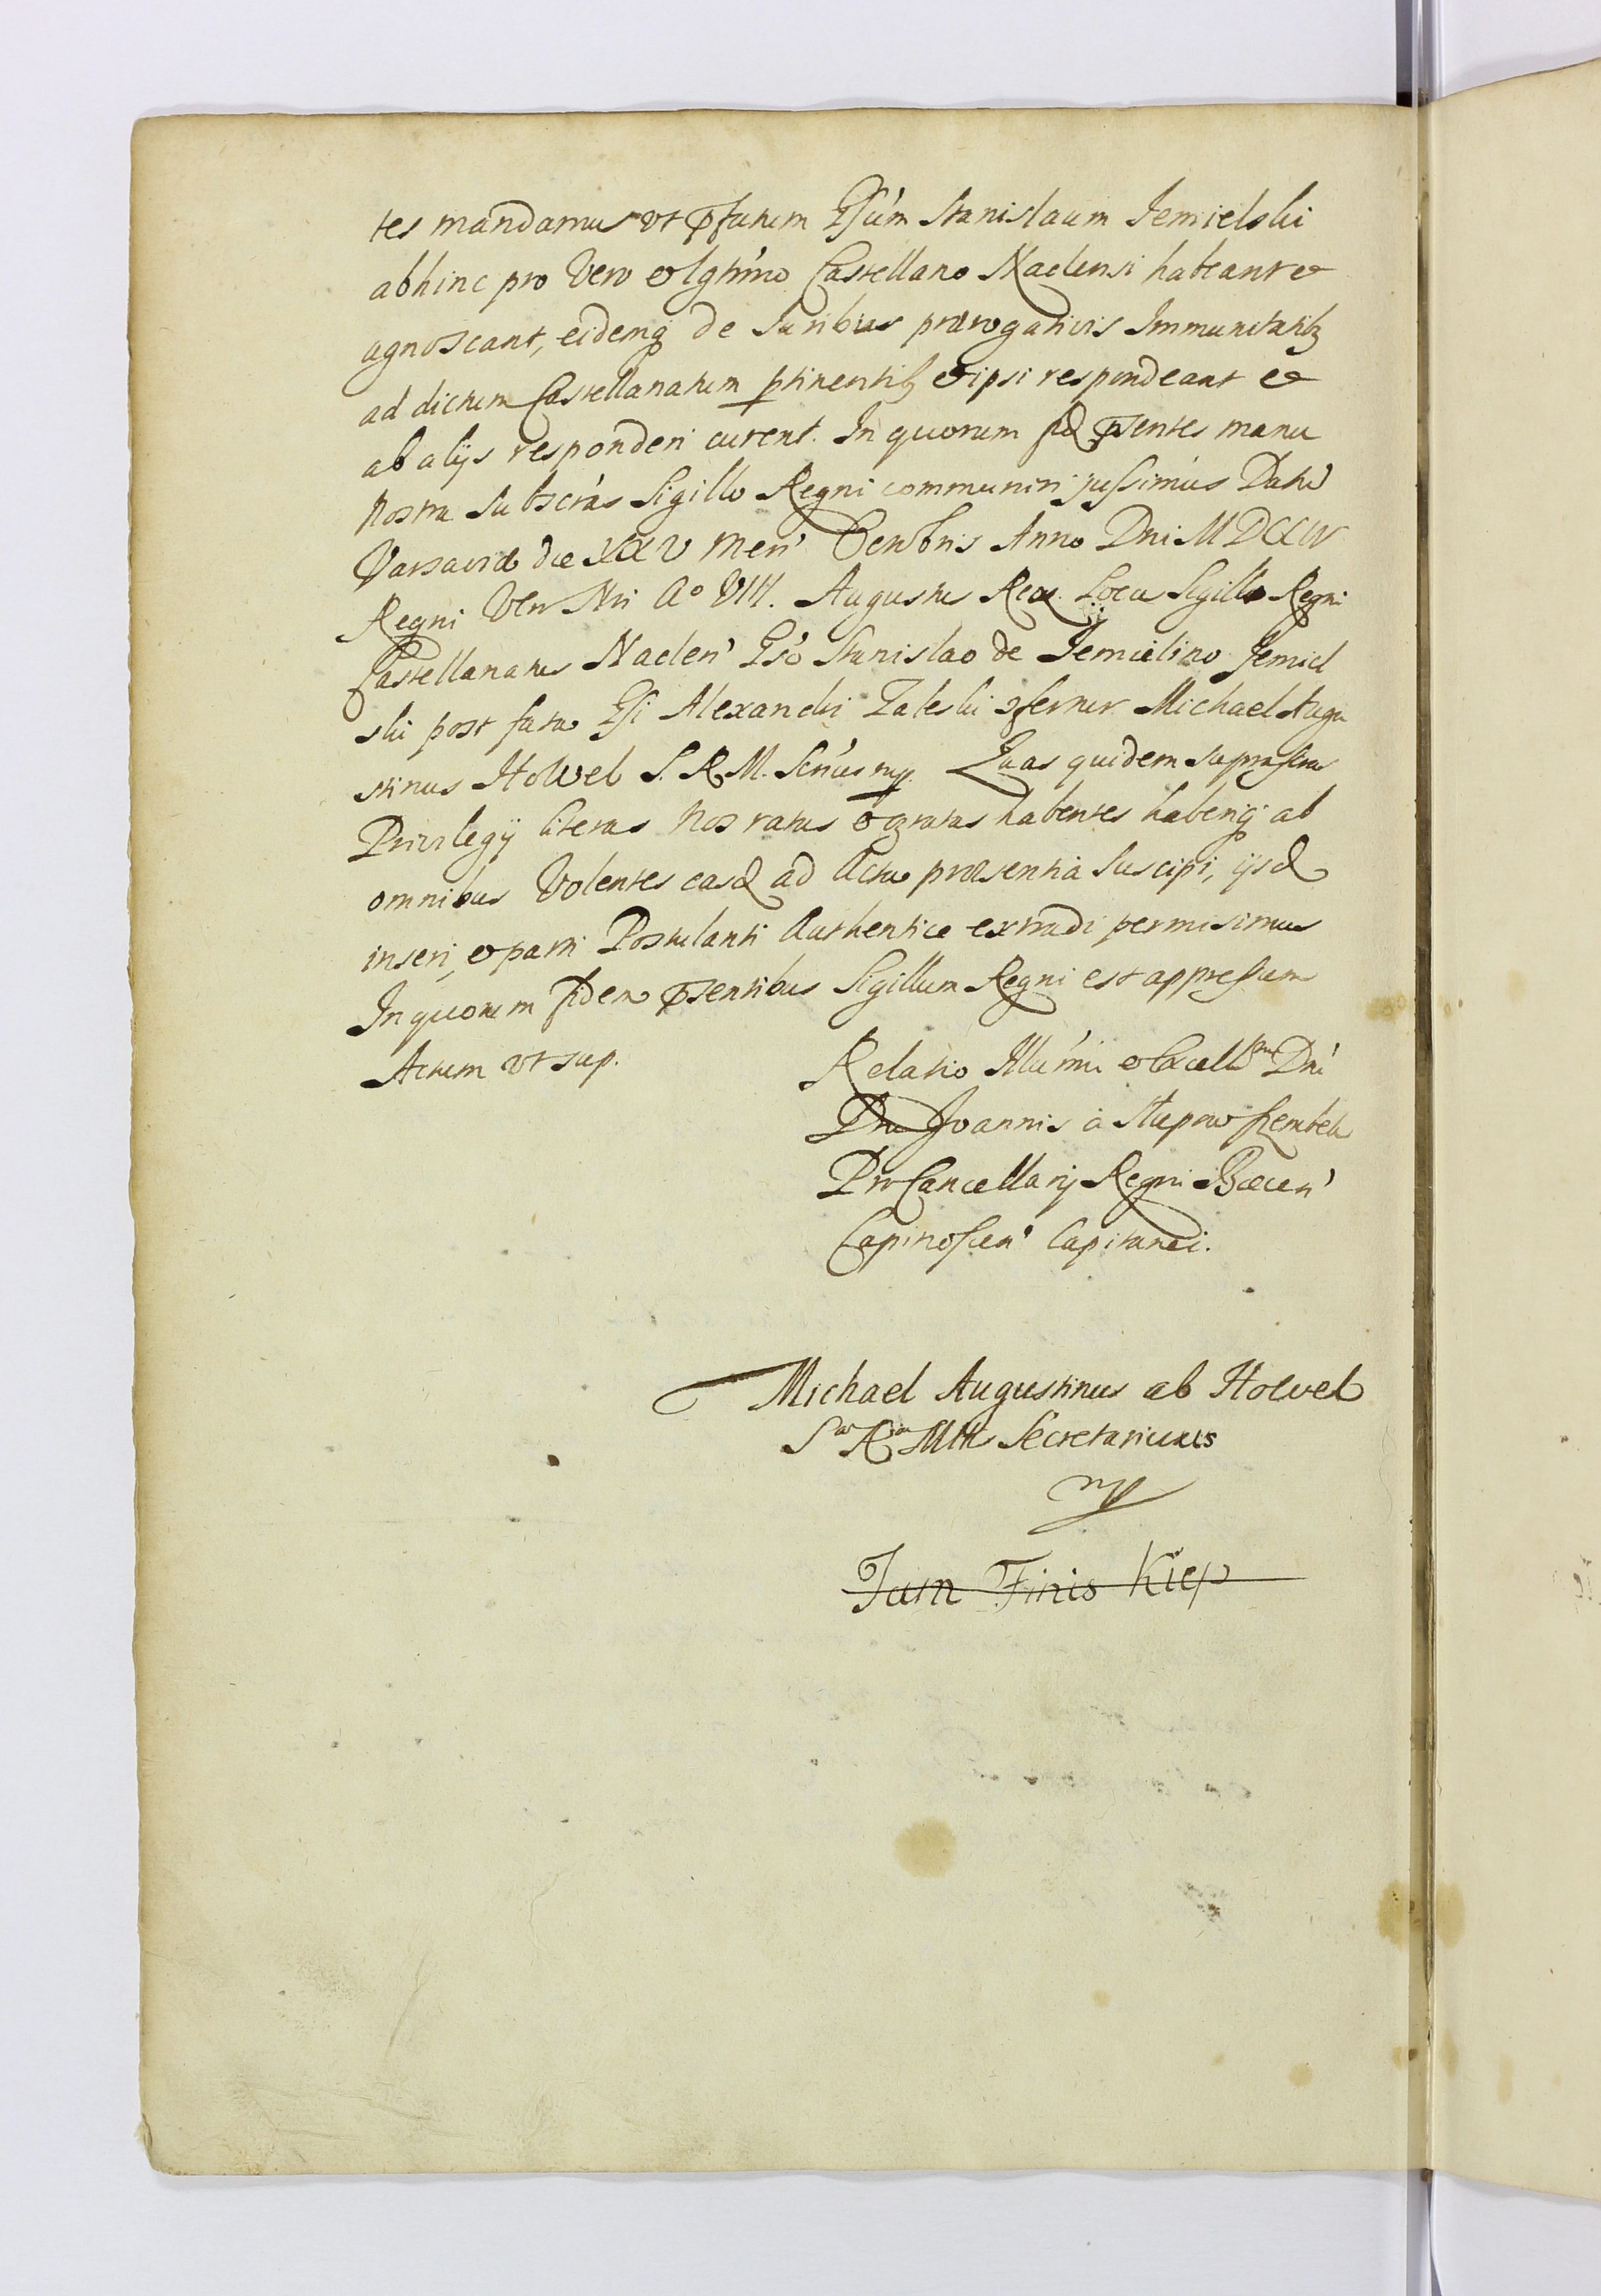 tes mandamus vt pfatum Gsúm Stanislaum Jemielski
abhinc pro Vero et lgtimo Castellano Naclensi habeant et
agnoscant, eidemq de Juribus prærogativis Immunitatibz
ad dictum Castellanatum ptinentibz et ipsi respondeant et
ab alijs responderi curent. In quorum fid psentes manu
Nostra Subscrás Sigillo Regni communiri jussimus Datu
Varsaviæ die XXV Men' Octobris Anno Dni MDCCIV
Regni Vero Nri Aº VIII. Augustus Rex. Locus Sigilli Regni
Castellanatus Naclen' Gso Stanislao de Jemielino Jemiel
ski post fata Gsi Alexandri Zaleski 9fertur Michael Augu
stinus Holvel S. R. M. Scrius mp. Quas quidem suprascras
Privilegij literas Nos ratas et gratas habentes haberiq ab
omnibus Volentes easd ad Acta præsentia Suscipi, ijsd
inseri, et parti Postulanti Authentice extradi permisimus
In quorum fidem psentibus Sigillum Regni est appressum
Actum vt sup.
Relatio Illúmi et Excellmi Dni
Dni Joannis à Słupow Szembek
Pro Cancellarij Regni Bæcen'
Capinoscen' Capitanei.
Michael Augustinus ab Holvel
Sæ Ræ Mttis Secretarius
mp
Jam Finis Kiep